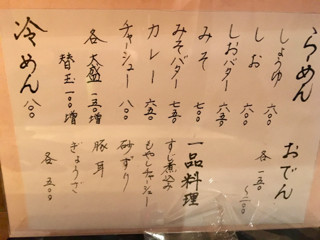 らーめん
しょうゆ 六〇〇
しお 六〇〇
しおバター 六五〇
みそ 七〇〇
みそバター 七五〇
カレー 六五〇
チャーシュー 八〇〇
各大盛 一五〇増
替玉 一〇〇増
冷めん 八〇〇
おでん
各 一五〇〜二〇〇
一品料理
すじ煮込み
もやしチャーシュー
砂ずり
豚耳
ぎょうざ
各 五〇〇